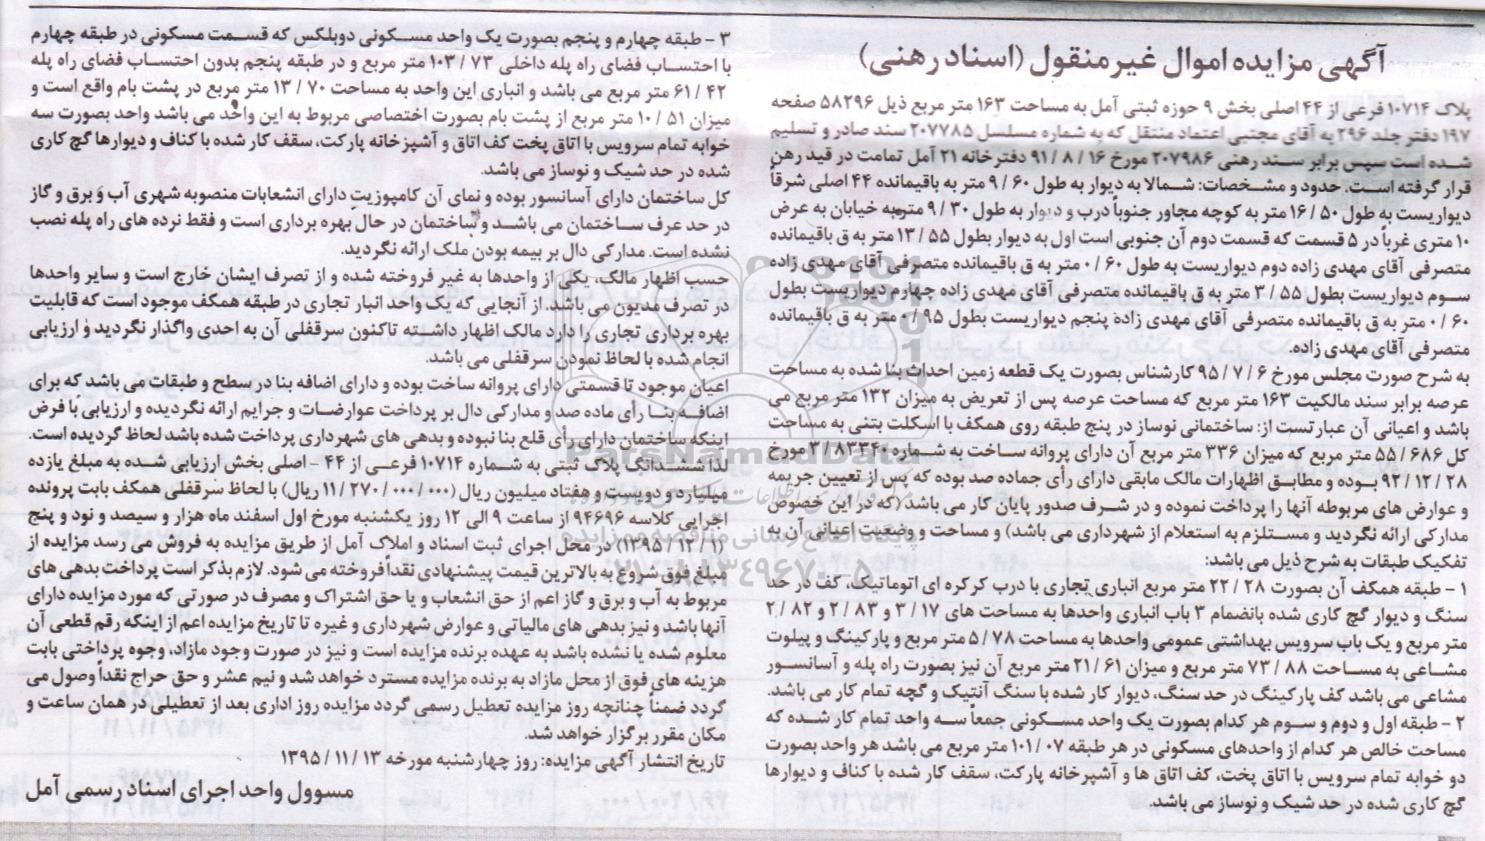 آگهی مزایده اموال غیرمنقول (اسناد رهنی)
پلاک ۱۰۷۱۴ فرعی از ۴۴ اصلی بخش ۹ حوزه ثبتی آمل به مساحت ۱۶۳ متر مربع ذیل ۵۸۲۹۶ صفحه
۱۹۷ دفتر جلد ۲۹۶ به آقای مجتبی اعتماد منتقل که به شماره مسلسل ۲۰۷۷۸۵ سند صادر و تسلیم
شده است سپس برابر سند رهنی ۲۰۷۹۸۶ مورخ ۱۶ / ۸ / ۹۱ دفترخانه ۲۱ آمل تمامت در قید رهن
قرار گرفته است. حدود و مشخصات: شمالا به دیوار به طول ۶۰ / ۹ متر به باقیمانده ۴۴ اصلی شرقاً
دیواریست به طول ۵۰ / ۱۶ متر به کوچه مجاور جنوباً درب و دیوار به طول ۳۰ / ۹ متر به خیابان به عرض
۱۰ متری غرباً در ۵ قسمت که قسمت دوم آن جنوبی است اول به دیوار بطول ۵۵ / ۱۳ متر به ق باقیمانده
متصرفی آقای مهدی زاده دوم دیواریست به طول ۶۰ / ۰ متر به ق باقیمانده متصرفی آقای مهدی زاده
سوم دیواریست بطول ۵۵ / ۳ متر به ق باقیمانده متصرفی آقای مهدی زاده چهارم دیواریست بطول
۶۰ / ۰ متر به ق باقیمانده متصرفی آقای مهدی زاده پنجم دیواریست بطول ۹۵ / ۰ متر به ق باقیمانده
متصرفی آقای مهدی زاده.
به شرح صورت مجلس مورخ ۶ / ۷ / ۹۵ کارشناس بصورت یک قطعه زمین احداث بنا شده به مساحت
عرصه برابر سند مالکیت ۱۶۳ متر مربع که مساحت عرصه پس از تعریض به میزان ۱۳۲ متر مربع می
باشد و اعیانی آن عبارتست از: ساختمانی نوساز در پنج طبقه روی همکف با اسکلت بتنی به مساحت
کل ۶۸۶ / ۵۵ متر مربع که میزان ۳۳۶ متر مربع آن دارای پروانه ساخت به شماره ۳/۸۳۳۴۰ مورخ
۲۸ / ۱۲ / ۹۲ بوده و مطابق اظهارات مالک مابقی دارای رأی جماده صد بوده که پس از تعیین جریمه
و عوارض های مربوطه آنها را پرداخت نموده و در شرف صدور پایان کار می باشد (که در این خصوص
مدارکی ارائه نگردید و مستلزم به استعلام از شهرداری می باشد) و مساحت و وضعیت اعیانی آن به
تفکیک طبقات به شرح ذیل می باشد:
۱ - طبقه همکف آن بصورت ۲۸ / ۲۲ متر مربع انباری تجاری با درب کرکره ای اتوماتیک، کف در حد
سنگ و دیوار گچ کاری شده بانضمام ۳ باب انباری واحدها به مساحت های ۱۷ / ۳ و ۸۳ / ۲ و ۸۲ / ۲
متر مربع و یک باب سرویس بهداشتی عمومی واحدها به مساحت ۷۸ / ۵ متر مربع و پارکینگ و پیلوت
مشاعی به مساحت ۸۸ / ۷۳ متر مربع و میزان ۶۱ / ۲۱ متر مربع آن نیز بصورت راه پله و آسانسور
مشاعی می باشد کف پارکینگ در حد سنگ، دیوار کار شده با سنگ آنتیک و گچه تمام کار می باشد.
۲ - طبقه اول و دوم و سوم هر کدام بصورت یک واحد مسکونی جمعاً سه واحد تمام کار شده که
مساحت خالص هر کدام از واحدهای مسکونی در هر طبقه ۰۷ / ۱۰۱ متر مربع می باشد هر واحد بصورت
دو خوابه تمام سرویس با اتاق پخت، کف اتاق ها و آشپزخانه پارکت، سقف کار شده با کناف و دیوارها
گچ کاری شده در حد شیک و نوساز می باشد.
۳ - طبقه چهارم و پنجم بصورت یک واحد مسکونی دوبلکس که قسمت مسکونی در طبقه چهارم
با احتساب فضای راه پله داخلی ۷۳ / ۱۰۳ متر مربع و در طبقه پنجم بدون احتساب فضای راه پله
۴۲ / ۶۱ متر مربع می باشد و انباری این واحد به مساحت ۷۰ / ۱۳ متر مربع در پشت بام واقع است و
میزان ۵۱ / ۱۰ متر مربع از پشت بام بصورت اختصاصی مربوط به این واحد می باشد واحد بصورت سه
خوابه تمام سرویس با اتاق پخت کف اتاق و آشپزخانه پارکت، سقف کار شده با کناف و دیوارها گچ کاری
شده در حد شیک و نوساز می باشد.
کل ساختمان دارای آسانسور بوده و نمای آن کامپوزیت دارای انشعابات منصوبه شهری آب و برق و گاز
در حد عرف ساختمان می باشد و ساختمان در حال بهره برداری است و فقط نرده های راه پله نصب
نشده است. مدارکی دال بر بیمه بودن ملک ارائه نگردید.
حسب اظهار مالک یکی از واحدها به غیر فروخته شده و از تصرف ایشان خارج است و سایر واحدها
در تصرف مدیون می باشد. از آنجایی که یک واحد انبار تجاری در طبقه همکف موجود است که قابلیت
بهره برداری تجاری را دارد مالک اظهار داشته تاکنون سرقفلی آن به احدی واگذار نگردید و ارزیابی
انجام شده با لحاظ نمودن سرقفلی می باشد.
اعیان موجود تا قسمتی دارای پروانه ساخت بوده و دارای اضافه بنا در سطح و طبقات می باشد که برای
اضافه بنا رأی ماده صد و مدارکی دال بر پرداخت عوارضات و جرایم ارائه نگردیده و ارزیابی با فرض
اینکه ساختمان دارای رأی قلع بنا نبوده و بدهی های شهرداری پرداخت شده باشد لحاظ گردیده است.
لذا ششدانگ پلاک ثبتی به شماره ۱۰۷۱۴ فرعی از ۴۴ - اصلی بخش ارزیابی شده به مبلغ یازده
میلیارد و دویست و هفتاد میلیون ریال (۱۱/۲۷۰/۰۰۰/۰۰۰ ریال) با لحاظ سرقفلی همکف بابت پرونده
اجرایی کلاسه ۹۴۶۹۶ از ساعت ۹ الی ۱۲ روز یکشنبه مورخ اول اسفند ماه هزار و سیصد و نود و پنج
(۱ / ۱۲ / ۱۳۹۵) در محل اجرای ثبت اسناد و املاک آمل از طریق مزایده به فروش می رسد مزایده از
مبلغ فوق شروع به بالاترین قیمت پیشنهادی نقداً فروخته می شود. لازم بذکر است پرداخت بدهی های
مربوط به آب و برق و گاز اعم از حق انشعاب و یا حق اشتراک و مصرف در صورتی که مورد مزایده دارای
آنها باشد و نیز بدهی های مالیاتی و عوارض شهرداری و غیره تا تاریخ مزایده اعم از اینکه رقم قطعی آن
معلوم شده یا نشده باشد به عهده برنده مزایده است و نیز در صورت وجود مازاد، وجوه پرداختی بابت
هزینه های فوق از محل مازاد به برنده مزایده مسترد خواهد شد و نیم عشر و حق حراج نقداً وصول می
گردد ضمناً چنانچه روز مزایده تعطیل رسمی گردد مزایده روز اداری بعد از تعطیلی در همان ساعت و
مکان مقرر برگزار خواهد شد.
تاریخ انتشار آگهی مزایده: روز چهارشنبه مورخه ۱۳ / ۱۱ / ۱۳۹۵
مسوول واحد اجرای اسناد رسمی آمل
ParsNamadData
پایگاه اطلاع رسانی مناقصه و مزایده